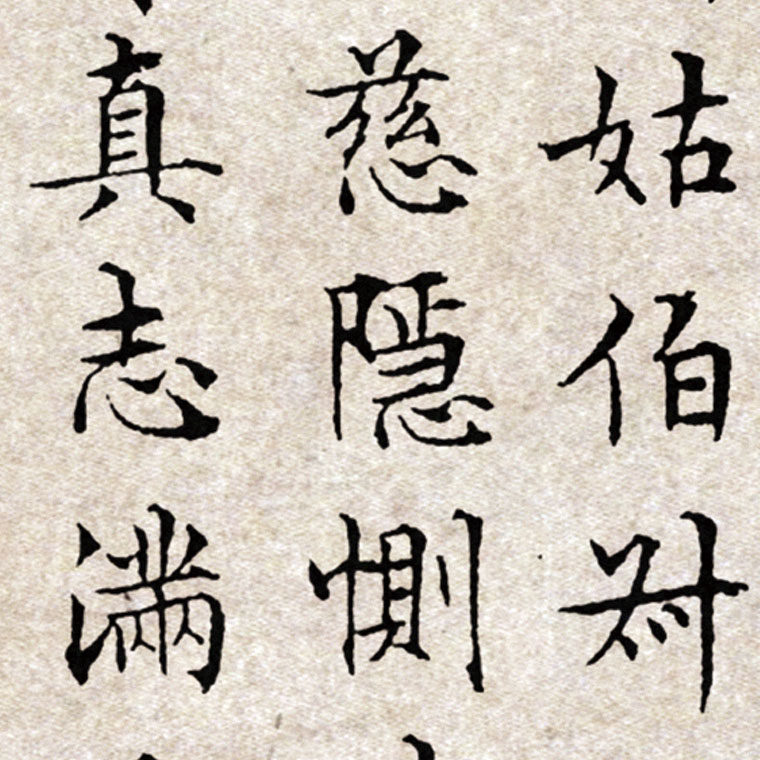 姑伯叔
慈隱惻
真志滿